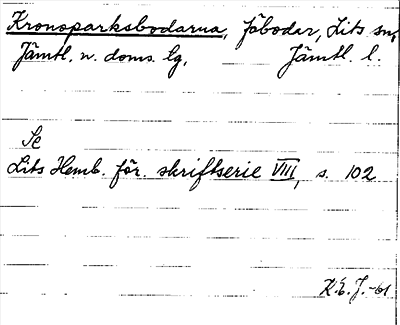 Kronoparksbodarna, Fäbodar, Lits sn,
Jämtl. n. doms. lg, Jämtl. l.
Se
Lits Hemb. för. skriftserie VIII, s. 102
K.E.J.-61